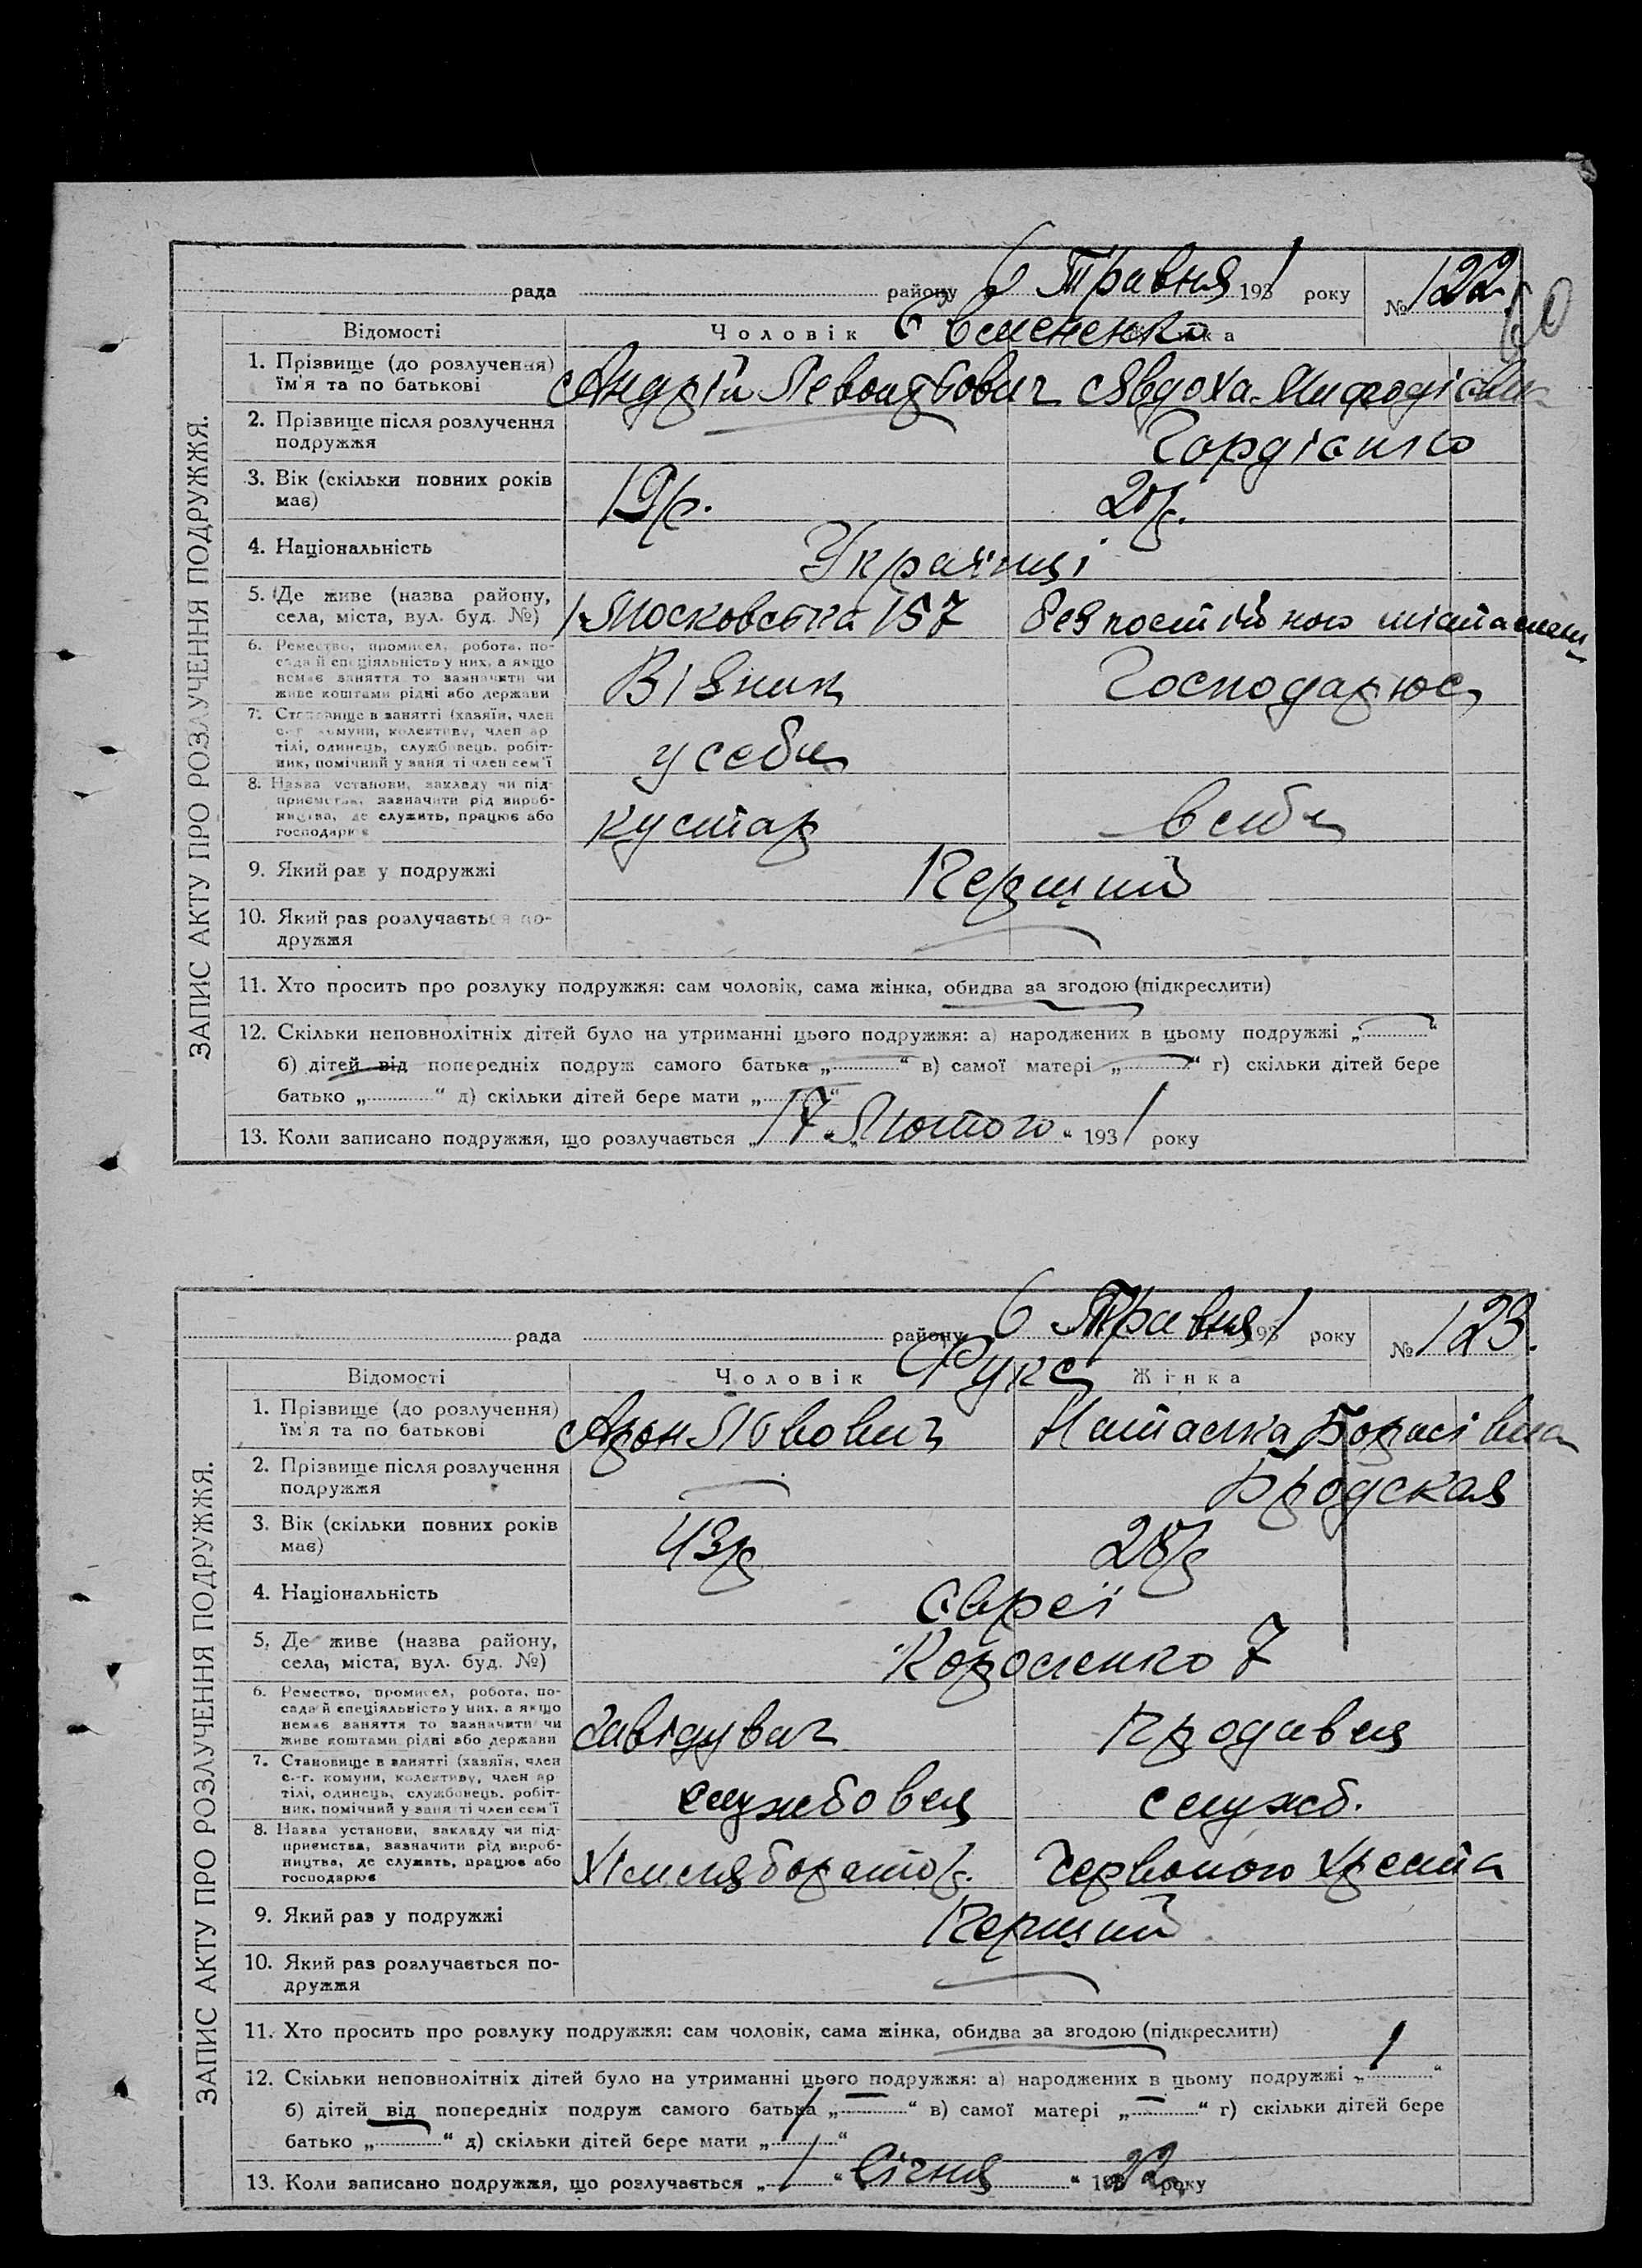 ЗАПИС АКТУ ПРО РОЗЛУЧЕННЯ ПОДРУЖЖЯ.
рада району 6 Травня 1931 року № 122.
60
Відомості Чоловік Жінка
1. Прізвище (до розлучення) ім'я та по батькові Андрій Явдоха
2. Прізвище після розлучення подружжя Гордієнко
3. Вік (скільки повних років має) 19р. 20р.
4. Національність Українці
5. Де живе (назва району, села, міста, вул. буд. №) Московська 157
6. Ремество, промисел, робота, посада й спеціяльність у них, а якщо немає заняття то зазначити чи живе коштами рідні або держави Візник Господарює
7. Становище в занятті (хазяїн, член с.-г. комуни, колективу, член артілі, одинець, службовець, робітник, помічний у занятті член сем'ї у себе
8. Назва установи, закладу чи підприємства, зазначити рід виробництва, де служить, працює або господарює кустар в себе
9. Який раз у подружжі Перший
10. Який раз розлучається подружжя
11. Хто просить про розлуку подружжя: сам чоловік, сама жінка, обидва за згодою (підкреслити)
12. Скільки неповнолітніх дітей було на утриманні цього подружжя: а) народжених в цьому подружжі „ “
б) дітей від попередніх подруж самого батька „ “ в) самої матері „ “ г) скільки дітей бере
батько „ “ д) скільки дітей бере мати „ “
13. Коли записано подружжя, що розлучається „17“ „Лютого“ 1931 року
ЗАПИС АКТУ ПРО РОЗЛУЧЕННЯ ПОДРУЖЖЯ.
рада району 6 Травня 1931 року № 123.
Фукс
Відомості Чоловік Жінка
1. Прізвище (до розлучення) ім'я та по батькові Арон Львович Борисівна
2. Прізвище після розлучення подружжя Бродская
3. Вік (скільки повних років має) 43р 28р
4. Національність Євреї
5. Де живе (назва району, села, міста, вул. буд. №) Короленко 7
6. Ремество, промисел, робота, посада й спеціяльність у них, а якщо немає заняття то зазначити чи живе коштами рідні або держави Завідувач Продавец
7. Становище в занятті (хазяїн, член с.-г. комуни, колективу, член артілі, одинець, службовець, робітник, помічний у занятті член сем'ї службовец служб.
8. Назва установи, закладу чи підприємства, зазначити рід виробництва, де служить, працює або господарює Червоного Хреста
9. Який раз у подружжі Перший
10. Який раз розлучається подружжя
11. Хто просить про розлуку подружжя: сам чоловік, сама жінка, обидва за згодою (підкреслити)
12. Скільки неповнолітніх дітей було на утриманні цього подружжя: а) народжених в цьому подружжі „1“
б) дітей від попередніх подруж самого батька „ “ в) самої матері „ “ г) скільки дітей бере
батько „ “ д) скільки дітей бере мати „1“
13. Коли записано подружжя, що розлучається „1“ Січня “ 1922 року